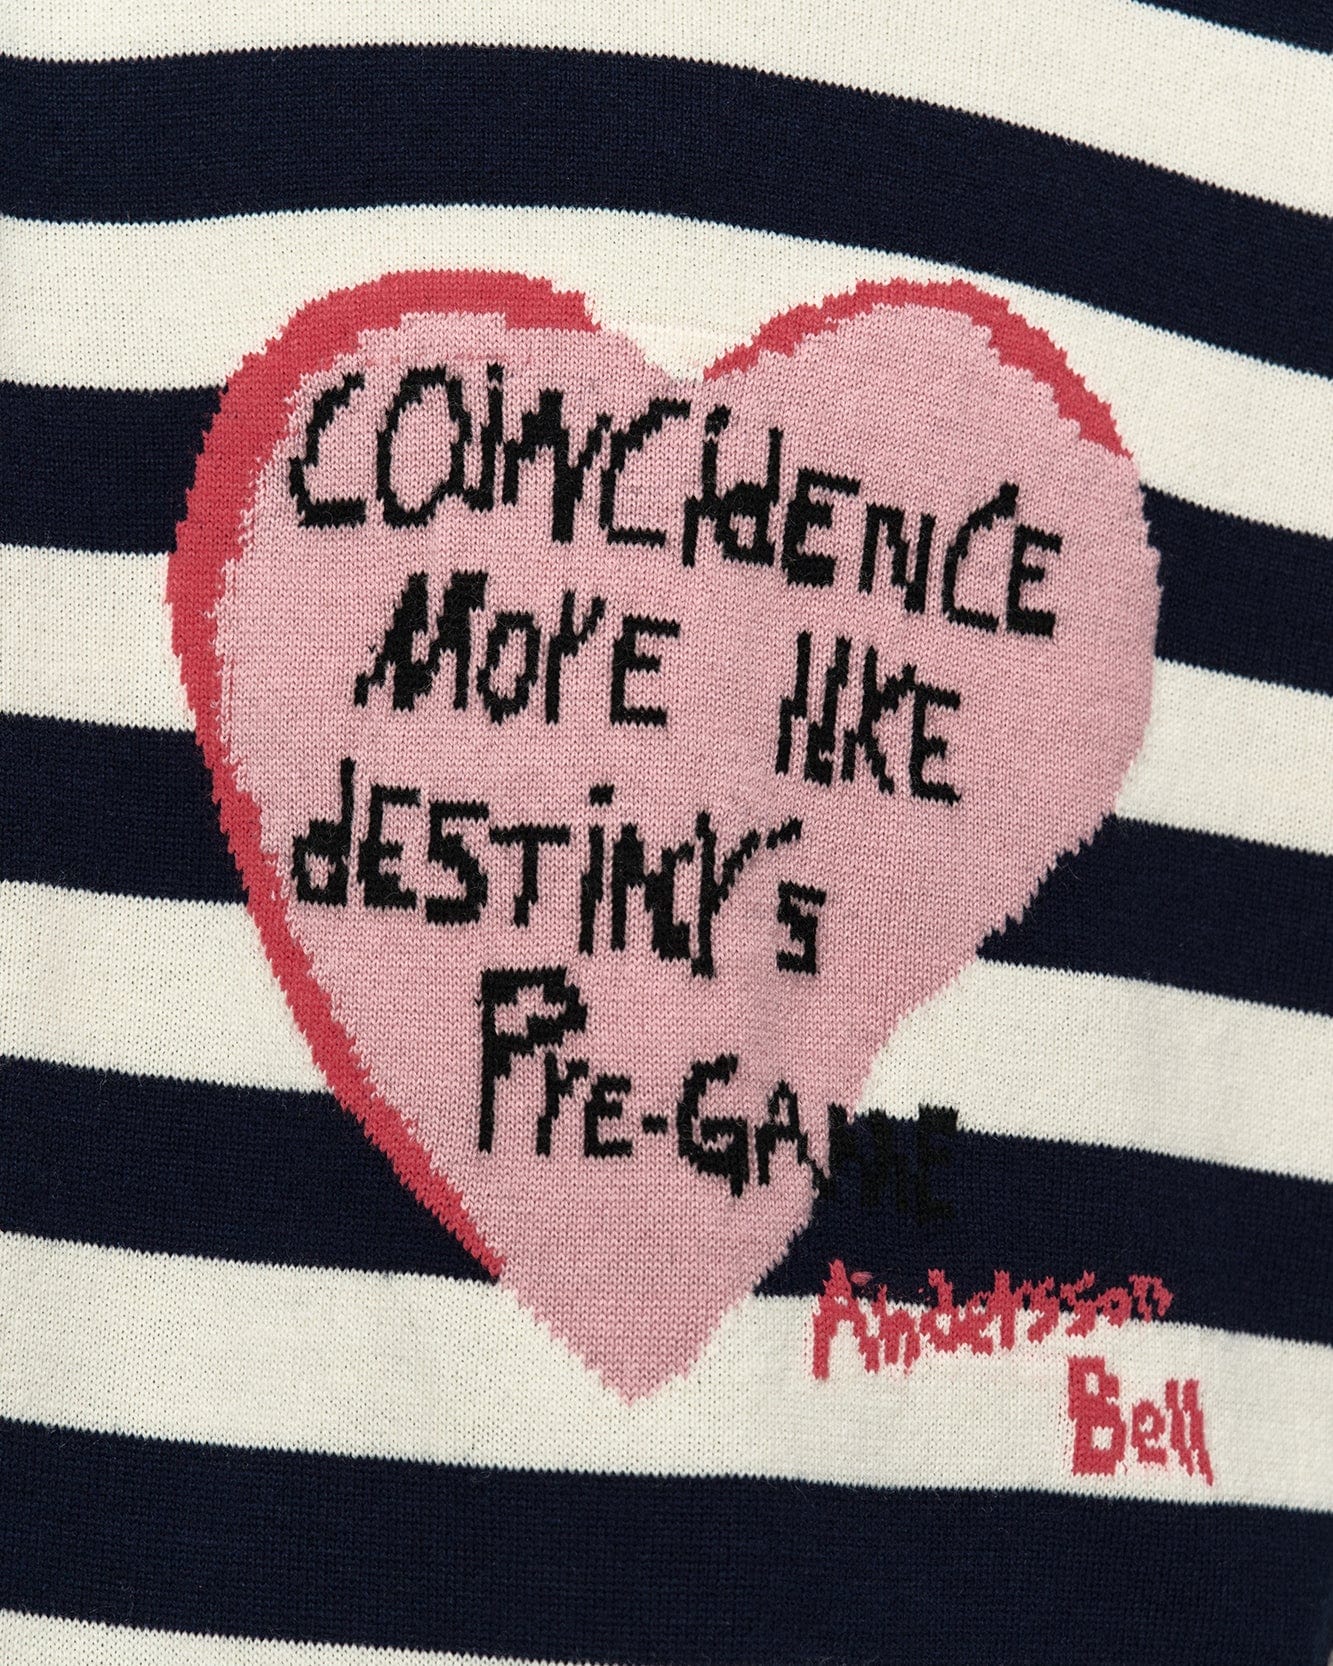 COINCIDENCE
MORE liKE
dESTiNY'S
PrE-GAME
Andersson
Bell